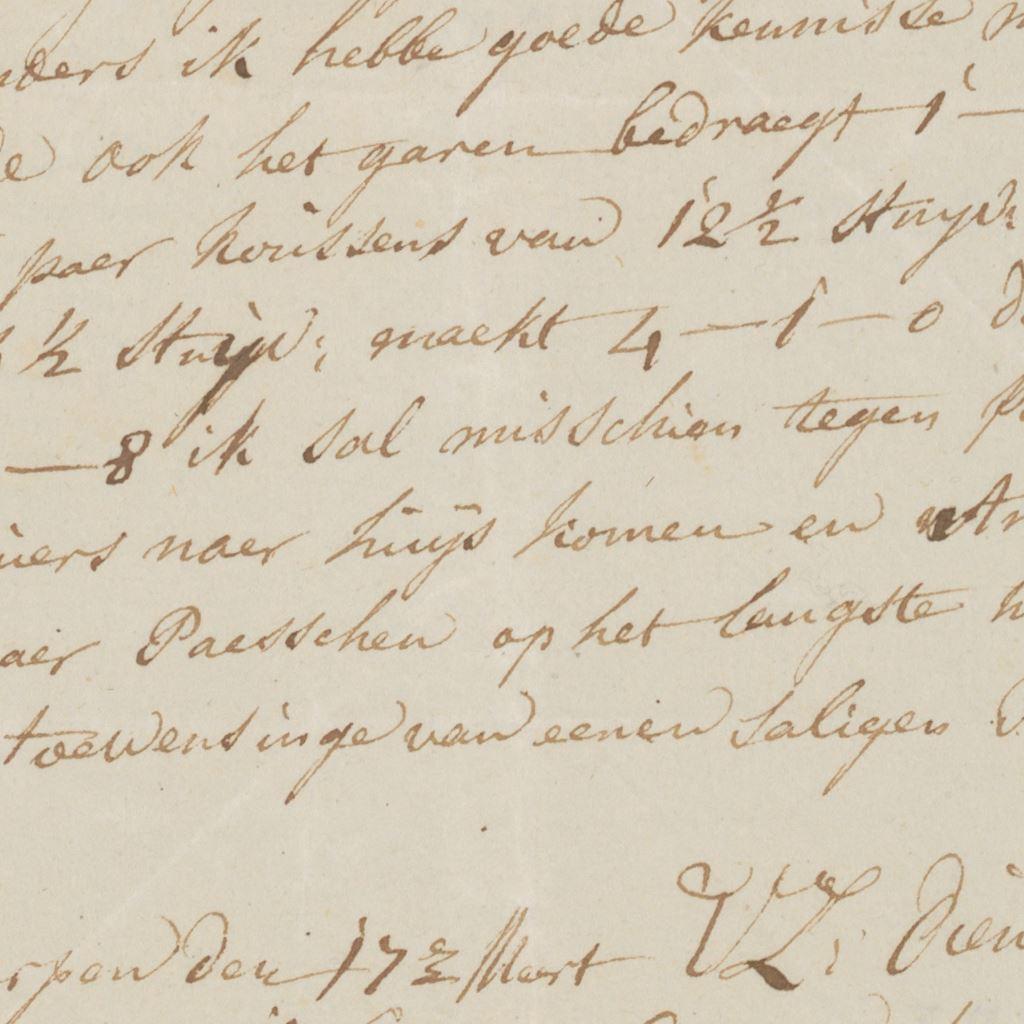 nders ik hebbe goede kennisse m
de ook het garen bedraegt 1 —
paer koussens van 12 ½ Stuyv:
½ Stuyv: maekt 4 — 1 — 0 d
— 8 ik sal misschien tegen p
uers naer huys komen en An
aer Paesschen op het langste h
toewensinge van eenen saligen
rpen den 17 Mart UL: Dien